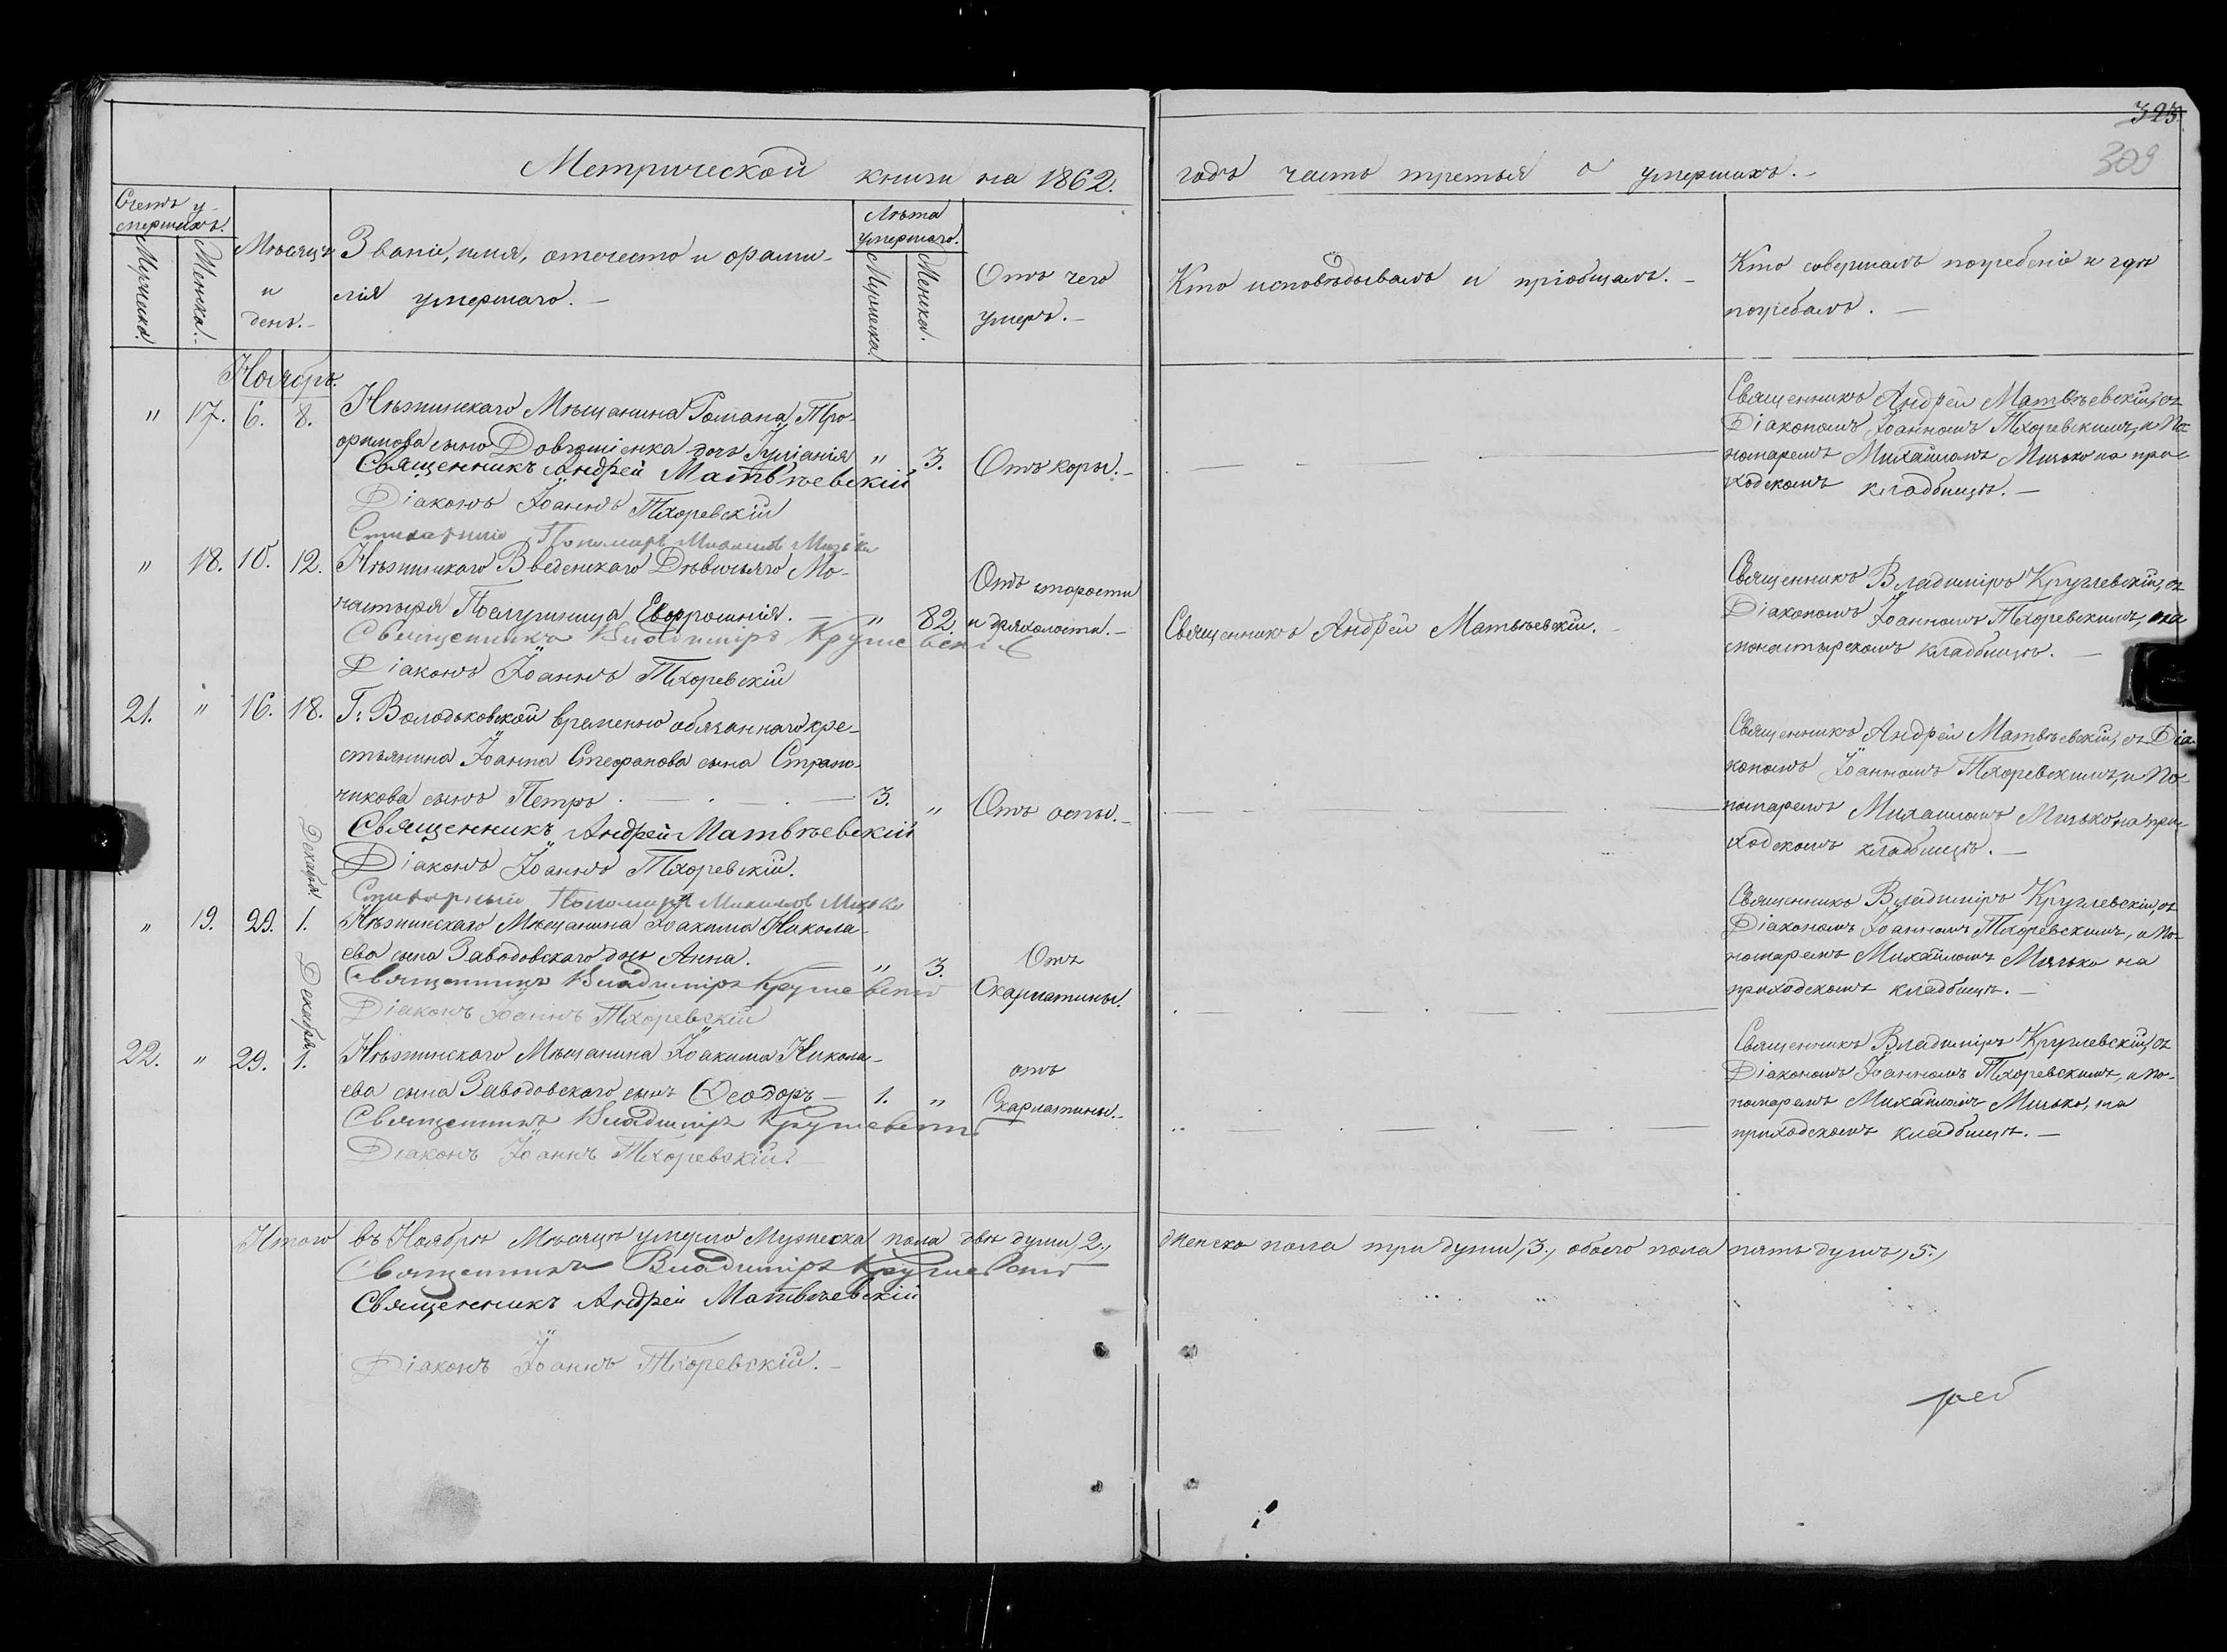 323.
309
Метрической книги на 1862. годъ часть третья о умершихъ.
Счетъ у-
мершихъ.
Мужеска.
Женска.
Мѣсяцъ
и
день.
Званіе, имя, отечество и фами-
лія умершаго.
Лѣта
умершаго.
Мужеска.
Женска.
Отъ чего
умеръ.
Кто исповѣдывалъ и пріобщалъ.
Кто совершалъ погребеніе и гдѣ
погребалъ.
Ноябрь.
" 17. 6. 8. Нѣжинскаго Мѣщанина Романа Тро-
фимова сына дочь Іуліанія " 3. Отъ кори.
Священникъ Андрей Матвѣевскій
Діаконъ Іоаннъ Тхоревскій
Стихарный Пономарь Михаилъ Мизько
Священникъ Андрей Матвѣевскій, съ
Діакономъ Іоанномъ Тхоревскимъ, и По-
номаремъ Михаиломъ Мизько на при-
ходскомъ кладбищѣ.
" 18. 10. 12. Нѣжинскаго Введенскаго Дѣвичьяго Мо-
настыря Послушница Евфросинія. " 82. Отъ старости
и дряхлости.
Священникъ Владиміръ Круглевскій
Діаконъ Іоаннъ Тхоревскій
Священникъ Андрей Матвѣевскій.
Священникъ Владиміръ Круглевскій, съ
Діакономъ Іоанномъ Тхоревскимъ, на
монастырскомъ кладбищѣ.
21. " 16. 18. Г: Володьковской временно обязаннаго кре-
стьянина Іоанна Стефанова сына
сынъ Петръ 3. " Отъ оспы.
Священникъ Андрей Матвѣевскій
Діаконъ Іоаннъ Тхоревскій.
Стихарный Пономарь Михаилъ Мизько
Священникъ Андрей Матвѣевскій, съ Діа-
кономъ Іоанномъ Тхоревскимъ, и По-
номаремъ Михаиломъ Мизько на при-
ходскомъ кладбищѣ.
Декабря.
" 19. 29. 1. Нѣжинскаго Мѣщанина Іоакима Никола-
ева сына Заводовскаго дочь Анна. " 3. Отъ
Скарлатины.
Священникъ Владиміръ Круглевскій
Діаконъ Іоаннъ Тхоревскій
Священникъ Владиміръ Круглевскій, съ
Діакономъ Іоанномъ Тхоревскимъ, и По-
номаремъ Михаиломъ Мизько на
приходскомъ кладбищѣ.
Декабря
22. " 29. 1. Нѣжинскаго Мѣщанина Іоакима Никола-
ева сына Заводовскаго сынъ Ѳеодоръ 1. " отъ
Скарлатины.
Священникъ Владиміръ Круглевскій
Діаконъ Іоаннъ Тхоревскій.
Священникъ Владиміръ Круглевскій, съ
Діакономъ Іоанномъ Тхоревскимъ, и По-
номаремъ Михаиломъ Мизько, на
приходскомъ кладбищѣ.
Итого въ Ноябрѣ Мѣсяцѣ умерло Мужеска пола двѣ души, 2., Женска пола три души, 3., обоего пола пять душъ, 5.,
Священникъ Владиміръ Круглевскій
Священникъ Андрей Матвѣевскій
Діаконъ Іоаннъ Тхоревскій.